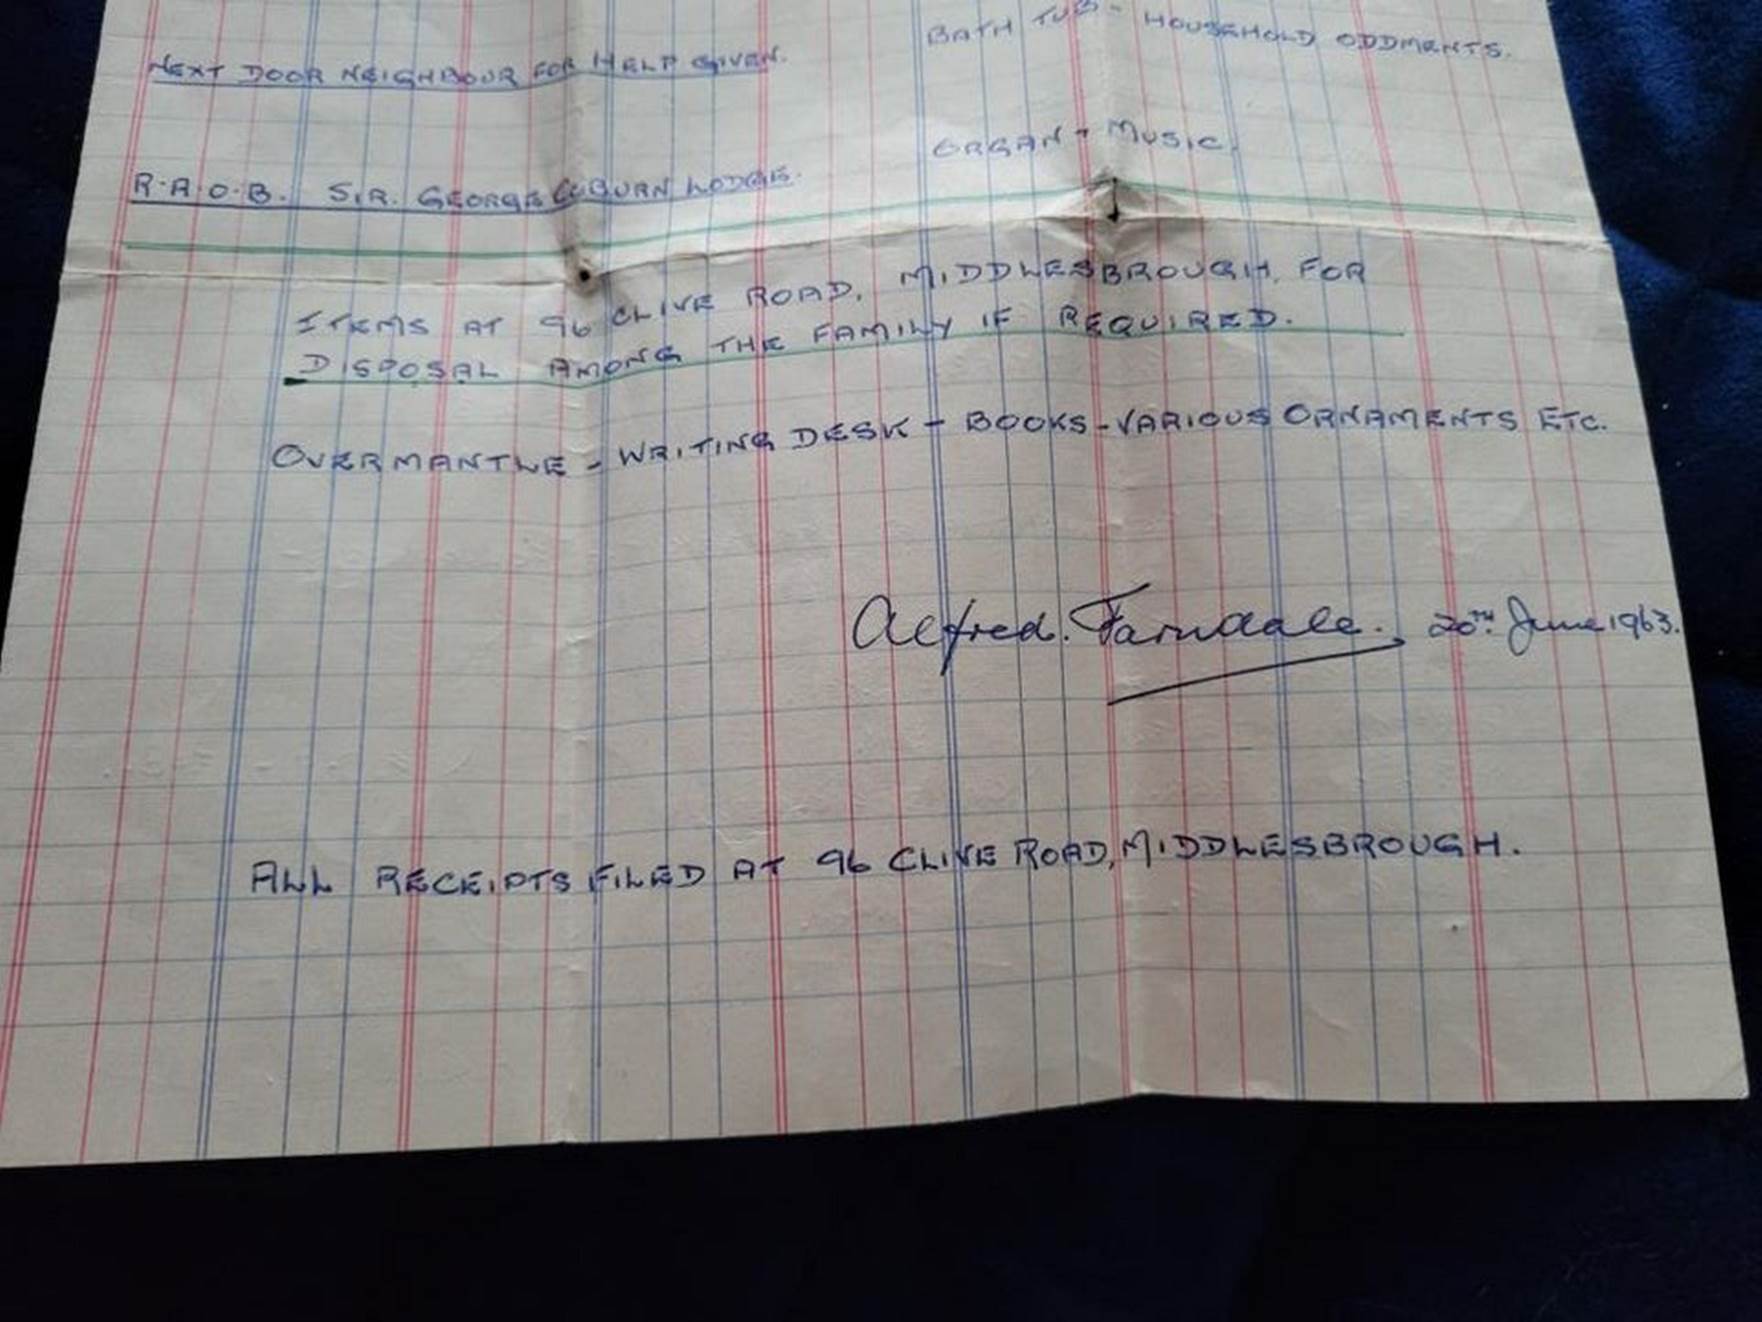 NEXT DOOR NEIGHBOUR FOR HELP GIVEN. BATH TUB - HOUSEHOLD ODDMENTS.
R.A.O.B. SIR. GEORGE COBURN LODGE. ORGAN + MUSIC.
ITEMS AT 96 CLIVE ROAD, MIDDLESBROUGH. FOR
DISPOSAL AMONG THE FAMILY IF REQUIRED.
OVERMANTLE - WRITING DESK - BOOKS - VARIOUS ORNAMENTS ETC.
Alfred. Farndale. 20TH June 1963.
ALL RECEIPTS FILED AT 96 CLIVE ROAD, MIDDLESBROUGH.